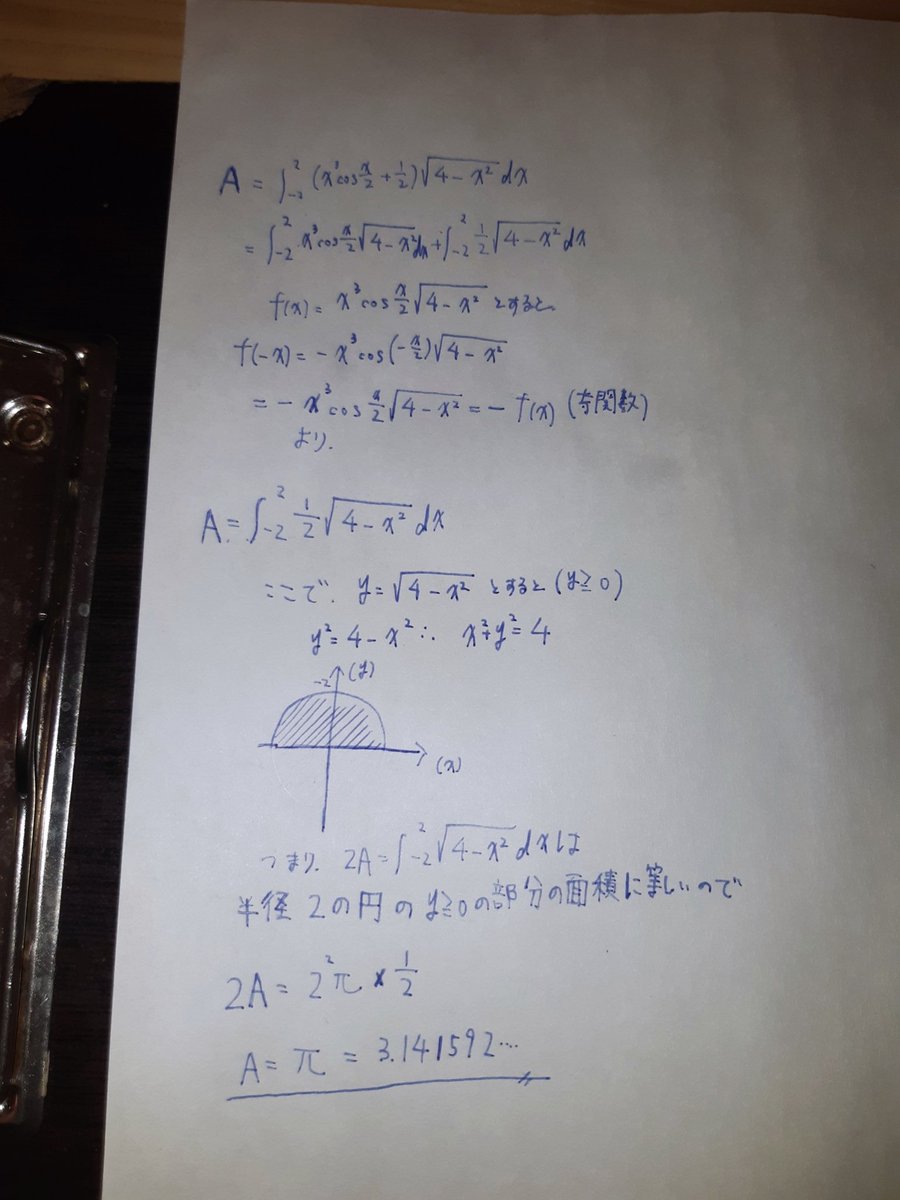 A = ∫₋₂² (x³cos x/2 + 1/2)√(4-x²) dx
= ∫₋₂² x³cos x/2 √(4-x²) dx + ∫₋₂² 1/2 √(4-x²) dx
f(x) = x³cos x/2 √(4-x²) とすると、
f(-x) = -x³cos(-x/2)√(4-x²)
= -x³cos x/2 √(4-x²) = -f(x) (奇関数)
より、
A = ∫₋₂² 1/2 √(4-x²) dx
ここで、y = √(4-x²) とすると (y≧0)
y² = 4-x² ∴ x²+y² = 4
-2 (y)
(x)
つまり、2A = ∫₋₂² √(4-x²) dx は
半径2の円のy≧0の部分の面積に等しいので
2A = 2²π × 1/2
A = π = 3.141592…